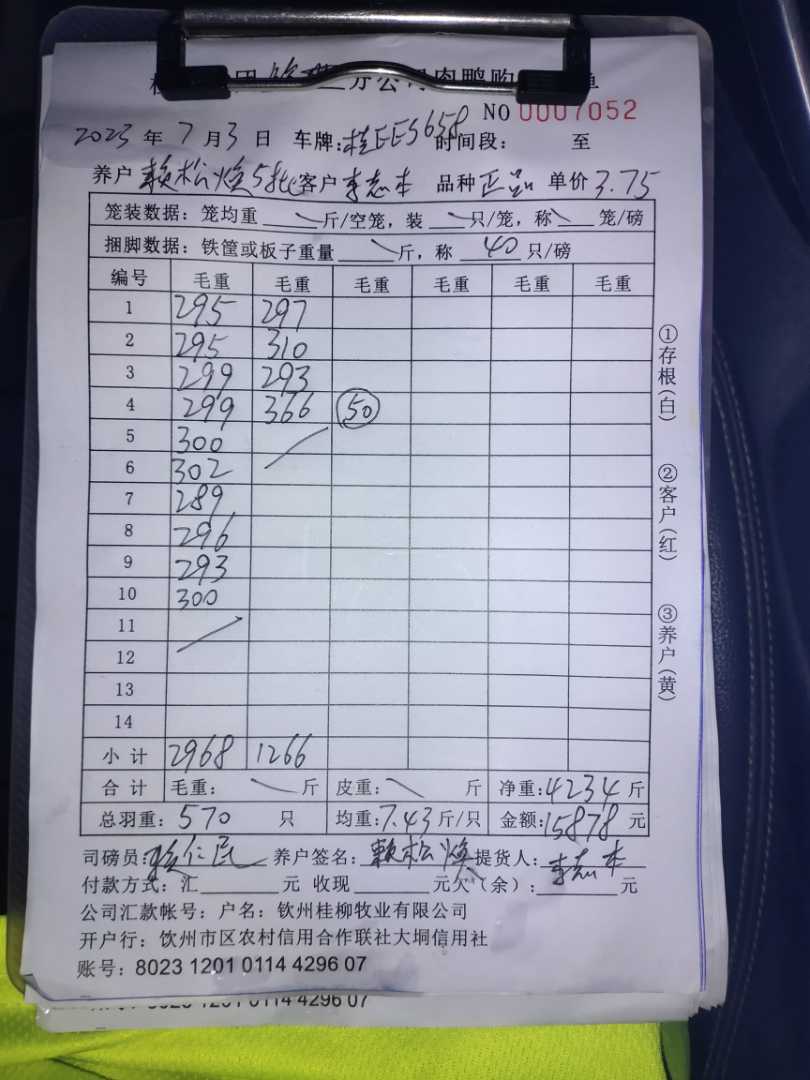 分公司肉鸭购 单
NO 0007052
2023 年 7 月 3 日 车牌:桂EE5658 时间段: 至
养户 赖松焕5批 客户 李志本 品种 正品 单价 3.75
笼装数据: 笼均重 斤/空笼, 装 只/笼, 称 笼/磅
捆脚数据: 铁筐或板子重量 斤, 称 40 只/磅
编号 毛重 毛重 毛重 毛重 毛重 毛重
1 295 297
2 295 310
3 299 293
4 299 366 50
5 300
6 302
7 289
8 296
9 293
10 300
11
12
13
14
小计 2968 1266
合计 毛重: 斤 皮重: 斤 净重:4234 斤
总羽重: 570 只 均重:7.43 斤/只 金额:15878 元
司磅员: 赖仁民 养户签名: 赖松焕 提货人: 李志本
付款方式: 汇 元 收现 元欠(余): 元
公司汇款帐号: 户名: 钦州桂柳牧业有限公司
开户行: 饮州市区农村信用合作联社大垌信用社
账号: 8023 1201 0114 4296 07
①存根(白)
②客户(红)
③养户(黄)
1201 0114 4296 07